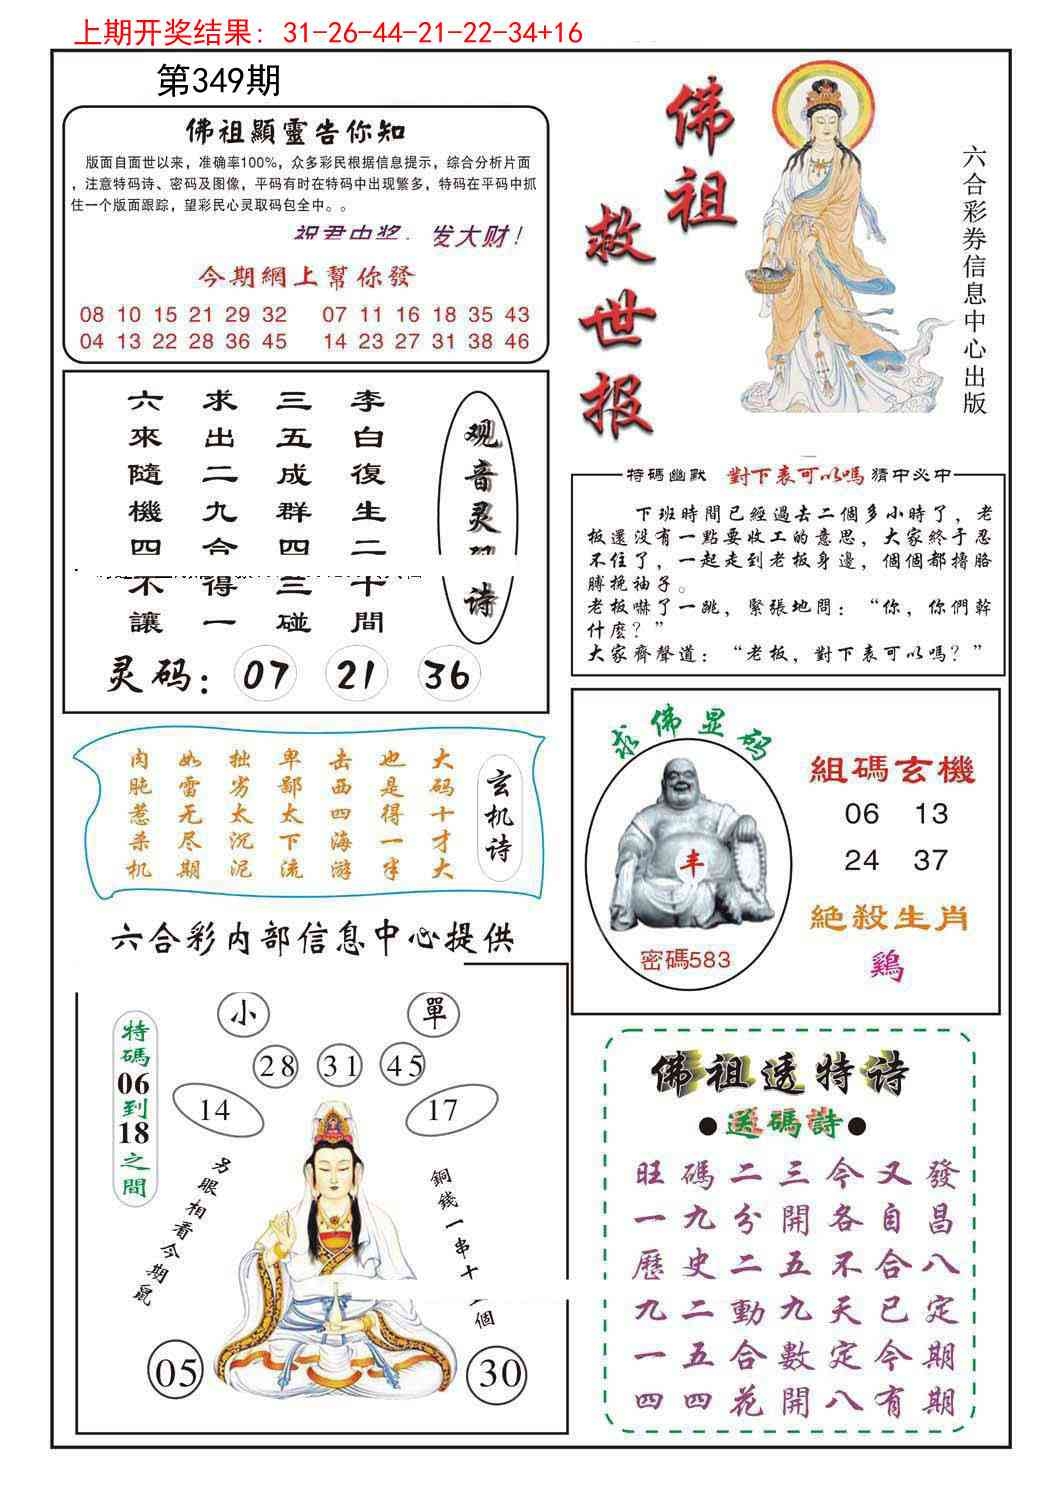 上期开奖结果：31-26-44-21-22-34+16
第349期
佛祖顯靈告你知
版面自面世以来，准确率100%，众多彩民根据信息提示，综合分析片面
，注意特码诗、密码及图像，平码有时在特码中出现繁多，特码在平码中抓
住一个版面跟踪，望彩民心灵取码包全中。。
祝君中奖，发大财！
今期網上幫你發
08 10 15 21 29 32 07 11 16 18 35 43
04 13 22 28 36 45 14 23 27 31 38 46
佛祖
救世报
六合彩券信息中心出版
观音灵诗
李白復生二十間
三五成群四三碰
求出二九合得一
六來隨機四不讓
灵码：07 21 36
特碼幽默 對下表可以嗎 猜中必中
下班時間已經過去二個多小時了，老
板還没有一點要收工的意思，大家終于忍
不住了，一起走到老板身邊，個個都擼胳
膊挽袖子。
老板嚇了一跳，緊張地問：“你，你們幹
什麽？”
大家齊聲道：“老板，對下表可以嗎？”
玄机诗
大码十才大
也是得一半
击西四海游
卑鄙太下流
拙劣太沉泥
如雷无尽期
肉肫惹杀机
求佛显码
丰
密碼583
組碼玄機
06 13
24 37
絕殺生肖
鷄
六合彩内部信息中心提供
小 單
28 31 45
14 17
特碼06到18之間
另眼相看今期鼠
銅錢一串十個
05 30
佛祖透特诗
●送碼詩●
旺碼二三今又發
一九分開各自昌
歷史二五不合八
九二動九天已定
一五合數定今期
四四花開八有期